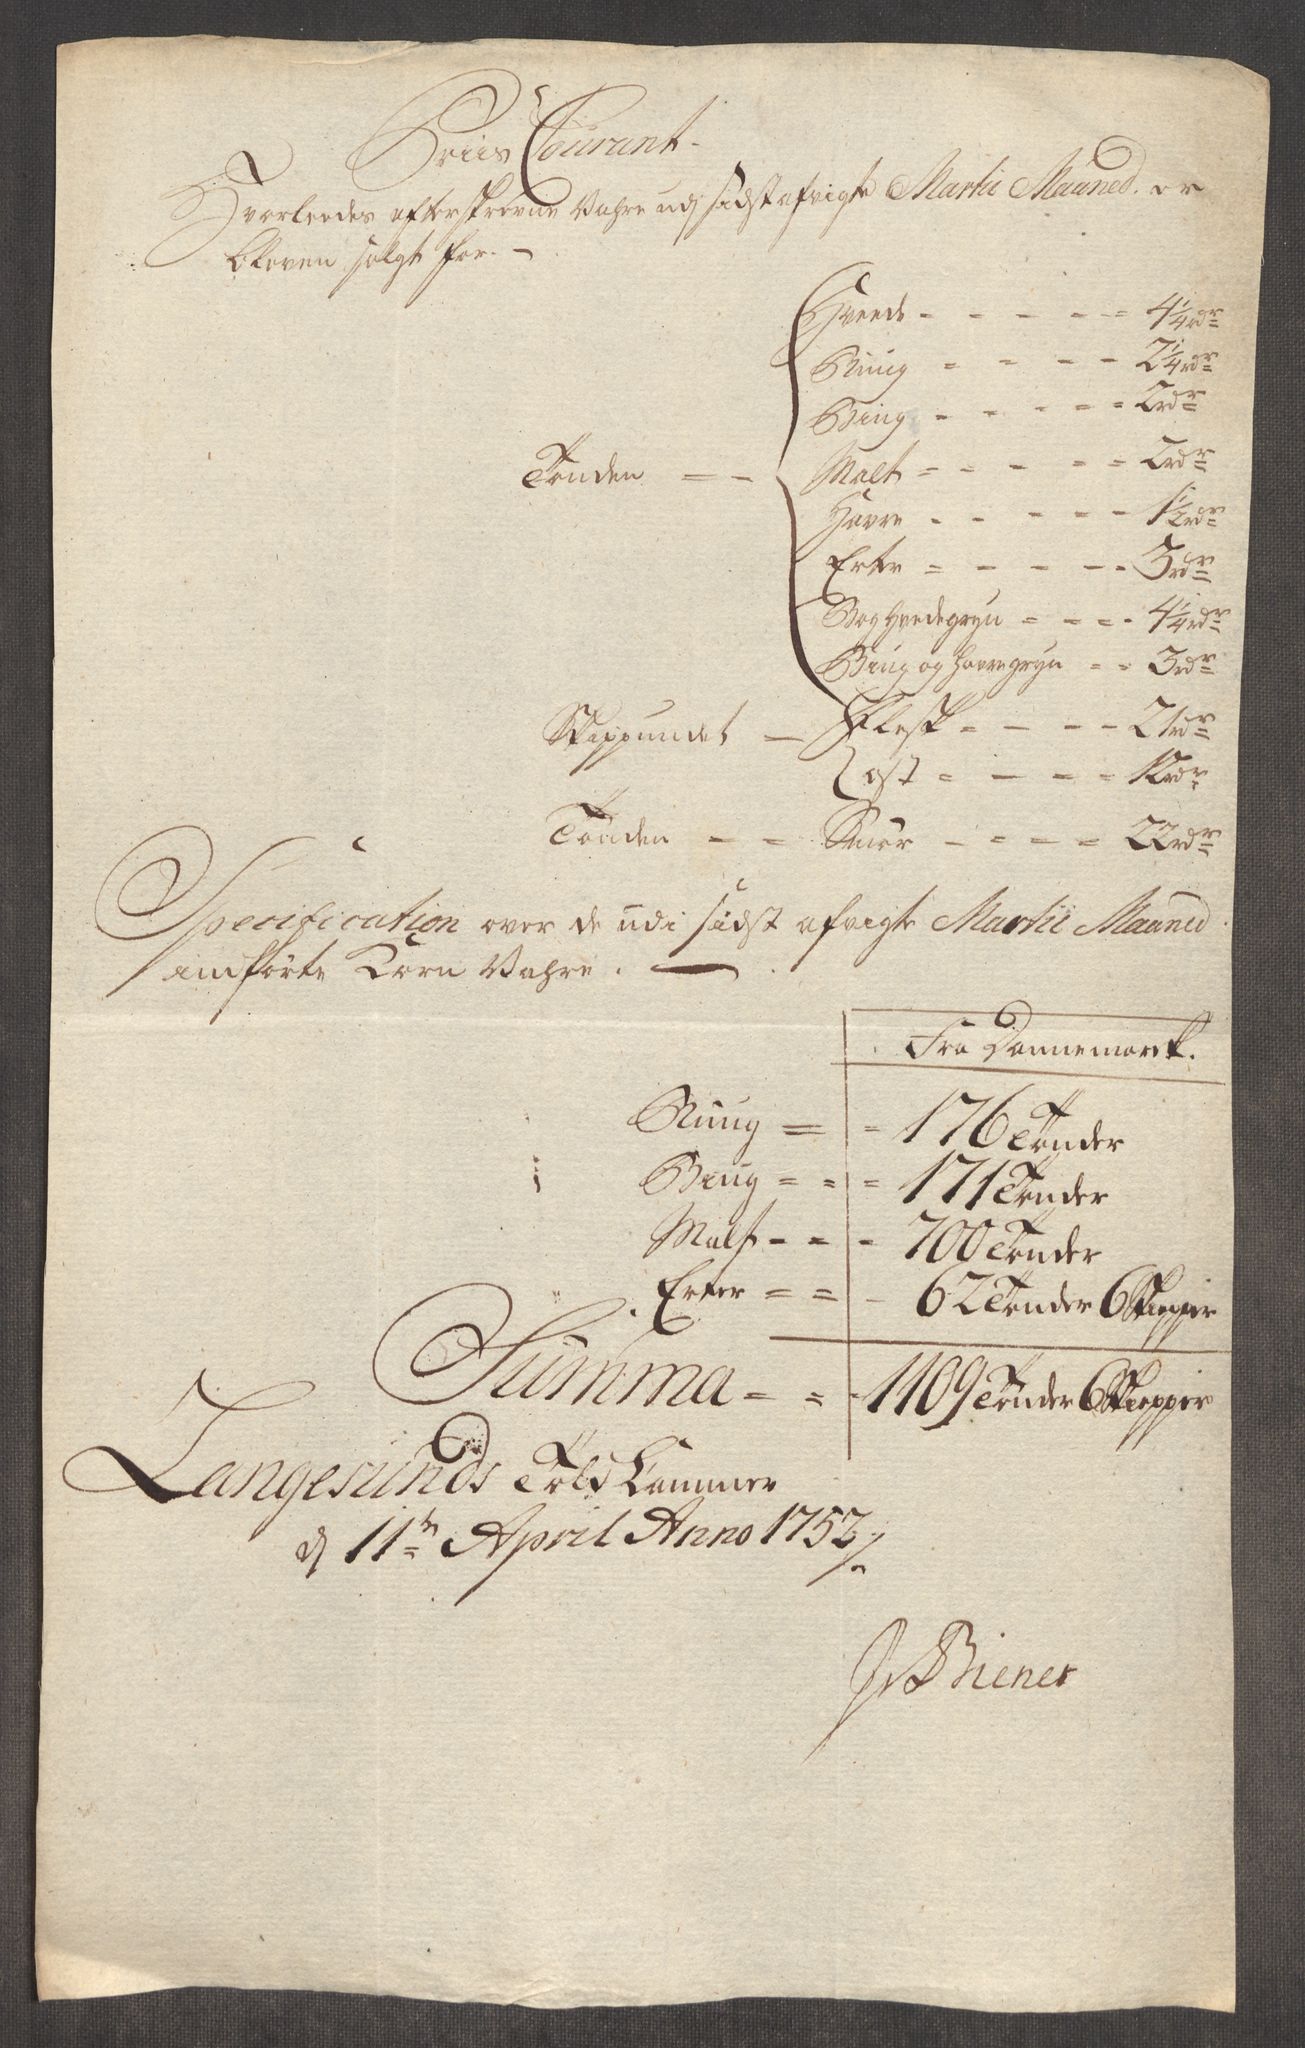 Priis Courant.
Hvorleedes efterskrevne Vahre udj sidst afvigte Martii Maaned. er
bleven solgt for. –
Hveede - - - - - 4 1/4 rdr
Ruug - - - - 2 1/4 rdr
Biug - - - - - 2 rdr
Tønden - - Malt - - - - - 2 rdr
Havre - - - - - 1 1/2 rdr
Erter - - - - - 3 rdr
Boghvedegryn - - - - 4 1/4 rdr
Biug og havregryn - - 3 rdr
Skippundet - Flesk - - - - 21 rdr
Ost - - - - 12 rdr
Tønden - - Smør - - - - 22 rdr
Specification over de udi sidst afvigte Martii Maaned
indførte Korn Vahre. —
Fra Dannemarck.
Ruug = - 176 Tønder
Biug - - - 171 Tønder
Malt - - - 700 Tønder
Erter = = - 62 Tønder 6 Skiepper
Summa - - - 1109 Tønder 6 Skiepper
Langesunds Told Kammer
dj 11te April Anno 1752/.
Biener